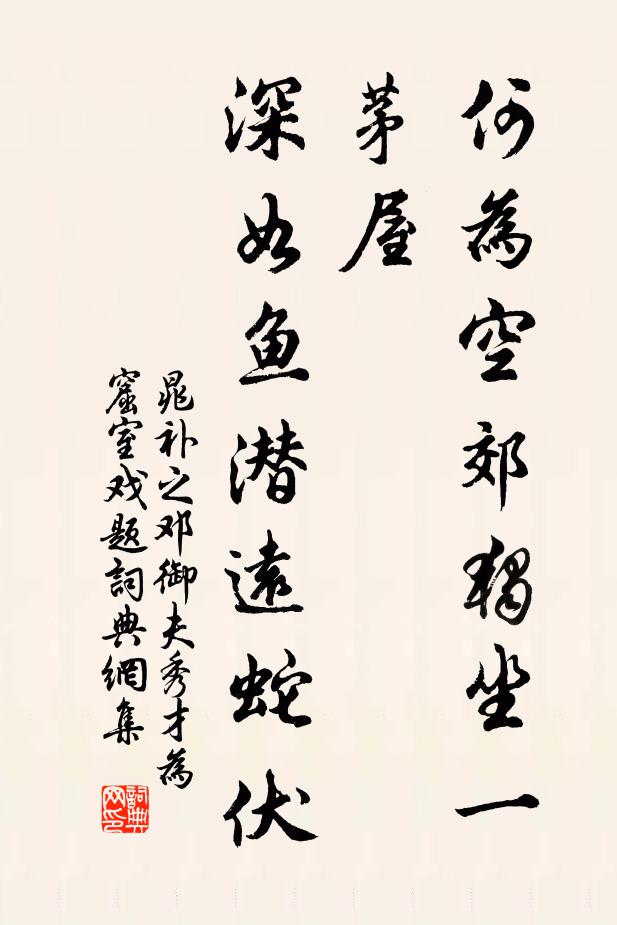 何為空郊獨坐一
茅屋
深如鱼潜遠蛇伏
晁补之邓御夫秀才為
窟室戏题詞典網集
詞典
网印